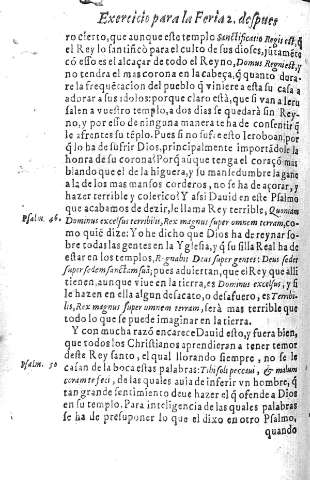 Exercicio para la Feria 2. despues
ro cierto, que aunque esto templo Sanctificatio Regis est, q̃
el Rey lo santificò para el culto de sus dioses, jũtamẽte
cõ esso es el alcaçar de todo el Reyno, Domus Regni est, y
no tendra el mas corona en la cabeça, q̃ quanto dura-
re la frequẽtacion del pueblo q̃ viniere a esta su casa a
adorar a sus idolos: porque claro està, que si van a Ieru
salen a vuestro templo, a dos dias se quedarà sin Rey-
no, y por esso de ninguna manera te ha de consentir q̃
le afrentes su tẽplo. Pues si no sufre esto Ieroboan, por
q̃ lo ha de sufrir Dios, principalmente importãdole la
honra de su corona? Porq̃ aũque tenga el coraçõ mas
blando que el de la higuera, y su mansedumbre la gane
a la de los mas mansos corderos, no se ha de açorar, y
hazer terrible y colerico? Y assi Dauid en este Psalmo
que acabamos de dezir, le llama Rey terrible, Quoniam
Psalm. 46. Dominus excelsus terribilis, Rex magnus super omnem terram, co-
mo quiẽ dize: Yo he dicho que Dios ha de reynar so-
bre todas las gentes en la Yglesia, y q̃ su silla Real ha de
estar en los templos, Regnabit Deus super gentes: Deus sedet
super sedem sanctam suã; pues aduiertan, que el Rey que alli
tienen, aunque viue en la tierra, es Dominus excelsus, y si
le hazen en ella algun desacato, o desafuero, es Terribi-
lis, Rex magnus super omnem terram, serà mas terrible que
todo lo que se puede imaginar en la tierra.
Y con mucha razõ encarece Dauid esto, y fuera bien,
que todos los Christianos aprendieran a tener temor
deste Rey santo, el qual llorando siempre, no se le
Psalm. 50 caían de la boca estas palabras: Tibi soli peccaui, & malum
coram te feci, de las quales auia de inferir vn hombre, q̃
tan grande sentimiento deue hazer el q̃ ofende a Dios
en su templo. Para inteligencia de las quales palabras
se ha de presuponer lo que el dixo en otro Psalmo,
quando